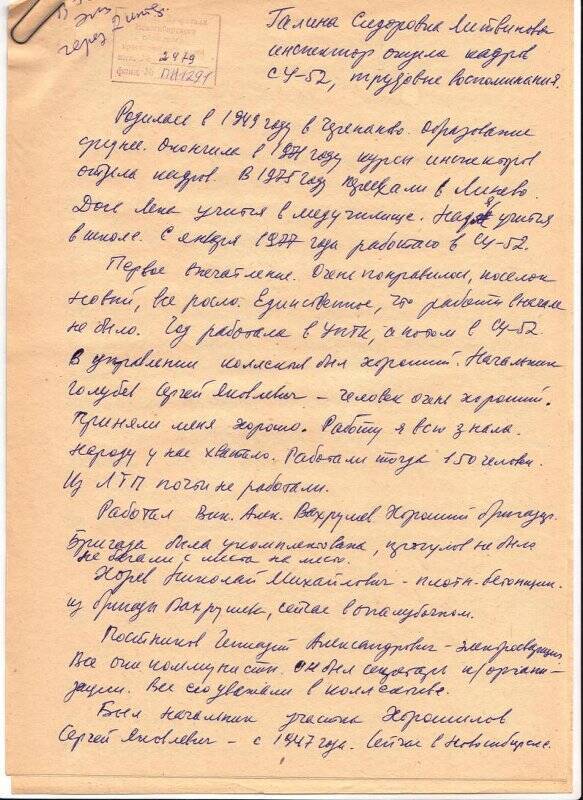 В
экз
через 2 инт.
инв. № 2979
фонд № ПИ1291
Галина Сидоровна Литвинова
инспектор отдела кадров
СУ-52, трудовые воспоминания.
Родилась в 1949 году в Черепаново. Образование
среднее. Окончила в 1971 году курсы инспекторов
отдела кадров. В 1975 году приехали в Линево.
Дочь Лена учится в медучилище. Надя учится
в школе. С января 1977 года работаю в СУ-52.
Первое впечатление. Очень понравилось, поселок
новый, все росло. Единственное, что работы вначале
не было. Год работала в УПТК, а потом в СУ-52.
В управлении коллектив был хороший. Начальник
Голубев Сергей Яковлевич - человек очень хороший.
Приняли меня хорошо. Работу я всю знала.
Народу у нас хватало. Работали тогда 150 человек.
Из ЛТП почти не работали.
Работал Вик. Алек. Вахрушев. Хороший бригадир.
Бригада была укомплектована, прогулов не было
не бегали с места на место.
Хорев Николай Михайлович - плотн.-бетонщик.
из бригады Вахрушев, сейчас в опалубочном.
Постников Геннадий Александрович - электросварщик
Все они коммунисты. Он был секретарь п/органи-
зации. Все его уважали в коллективе.
Был начальник участка Хорошилов
Сергей Яковлевич - с 1947 года. Сейчас в Новосибирске.